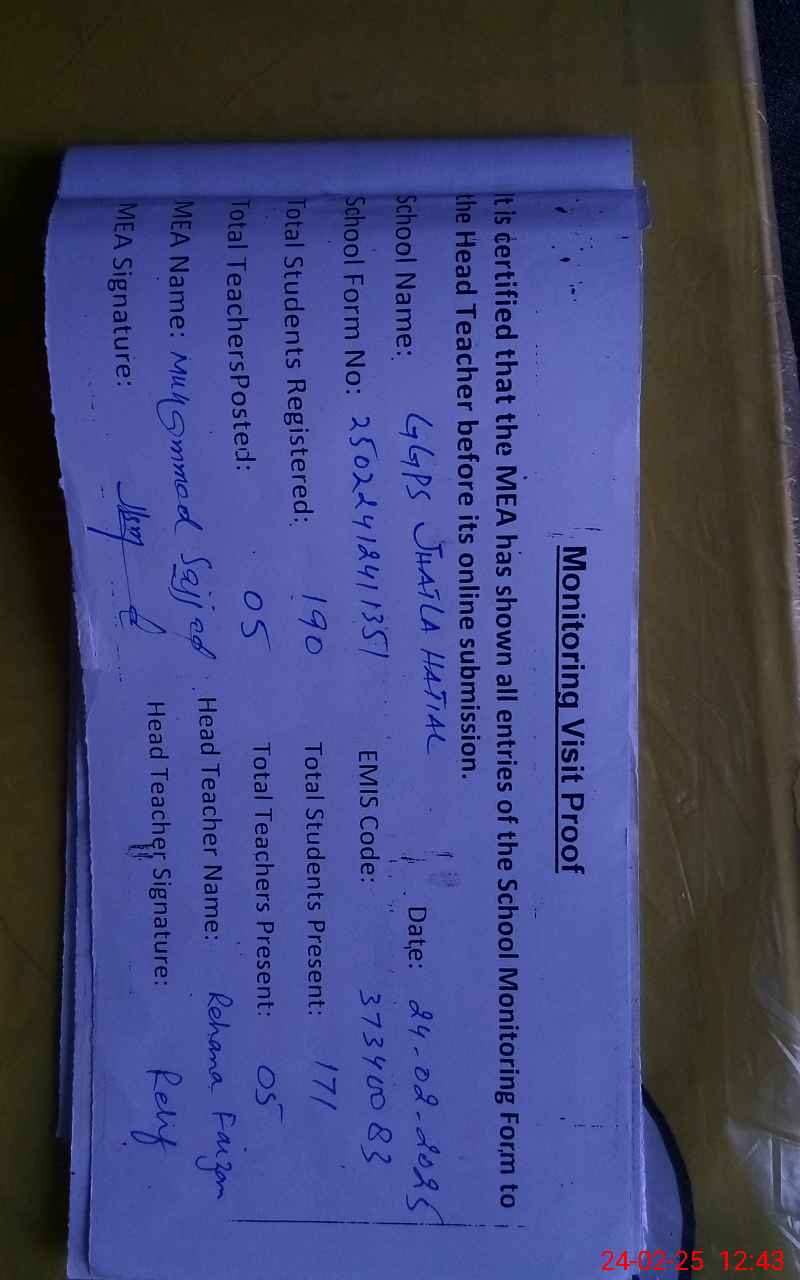 Monitoring Visit Proof
It is certified that the MEA has shown all entries of the School Monitoring Form to
the Head Teacher before its online submission.
School Name: GGPS JHATLA HATIAL Date: 24-02-2025
School Form No: 25022412411351 EMIS Code: 37340083
Total Students Registered: 190 Total Students Present: 171
Total TeachersPosted: 05 Total Teachers Present: 05
MEA Name: Muhammad Sajjad Head Teacher Name: Rehana Faizam
MEA Signature: Head Teacher Signature:
24-02-25 12:43